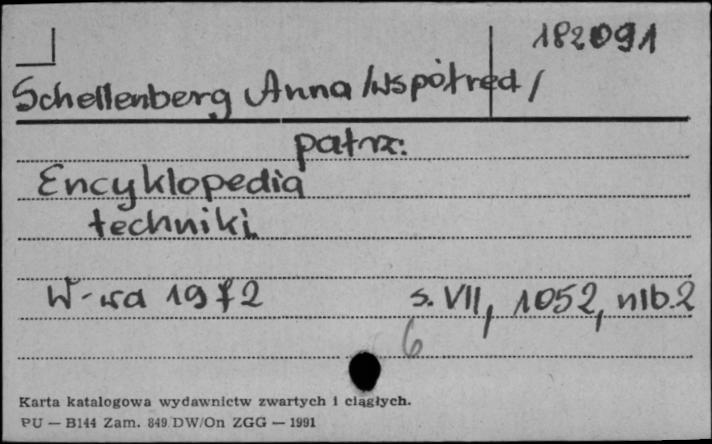 182091
Schellenberg Anna /współred/
patrz:
Encyklopedia
techniki.
W-wa 1972 s. VII, 1052, nlb. 2
6
Karta katalogowa wydawnictw zwartych i ciągłych.
PU — B144 Zam. 849 DW/On ZGG — 1991